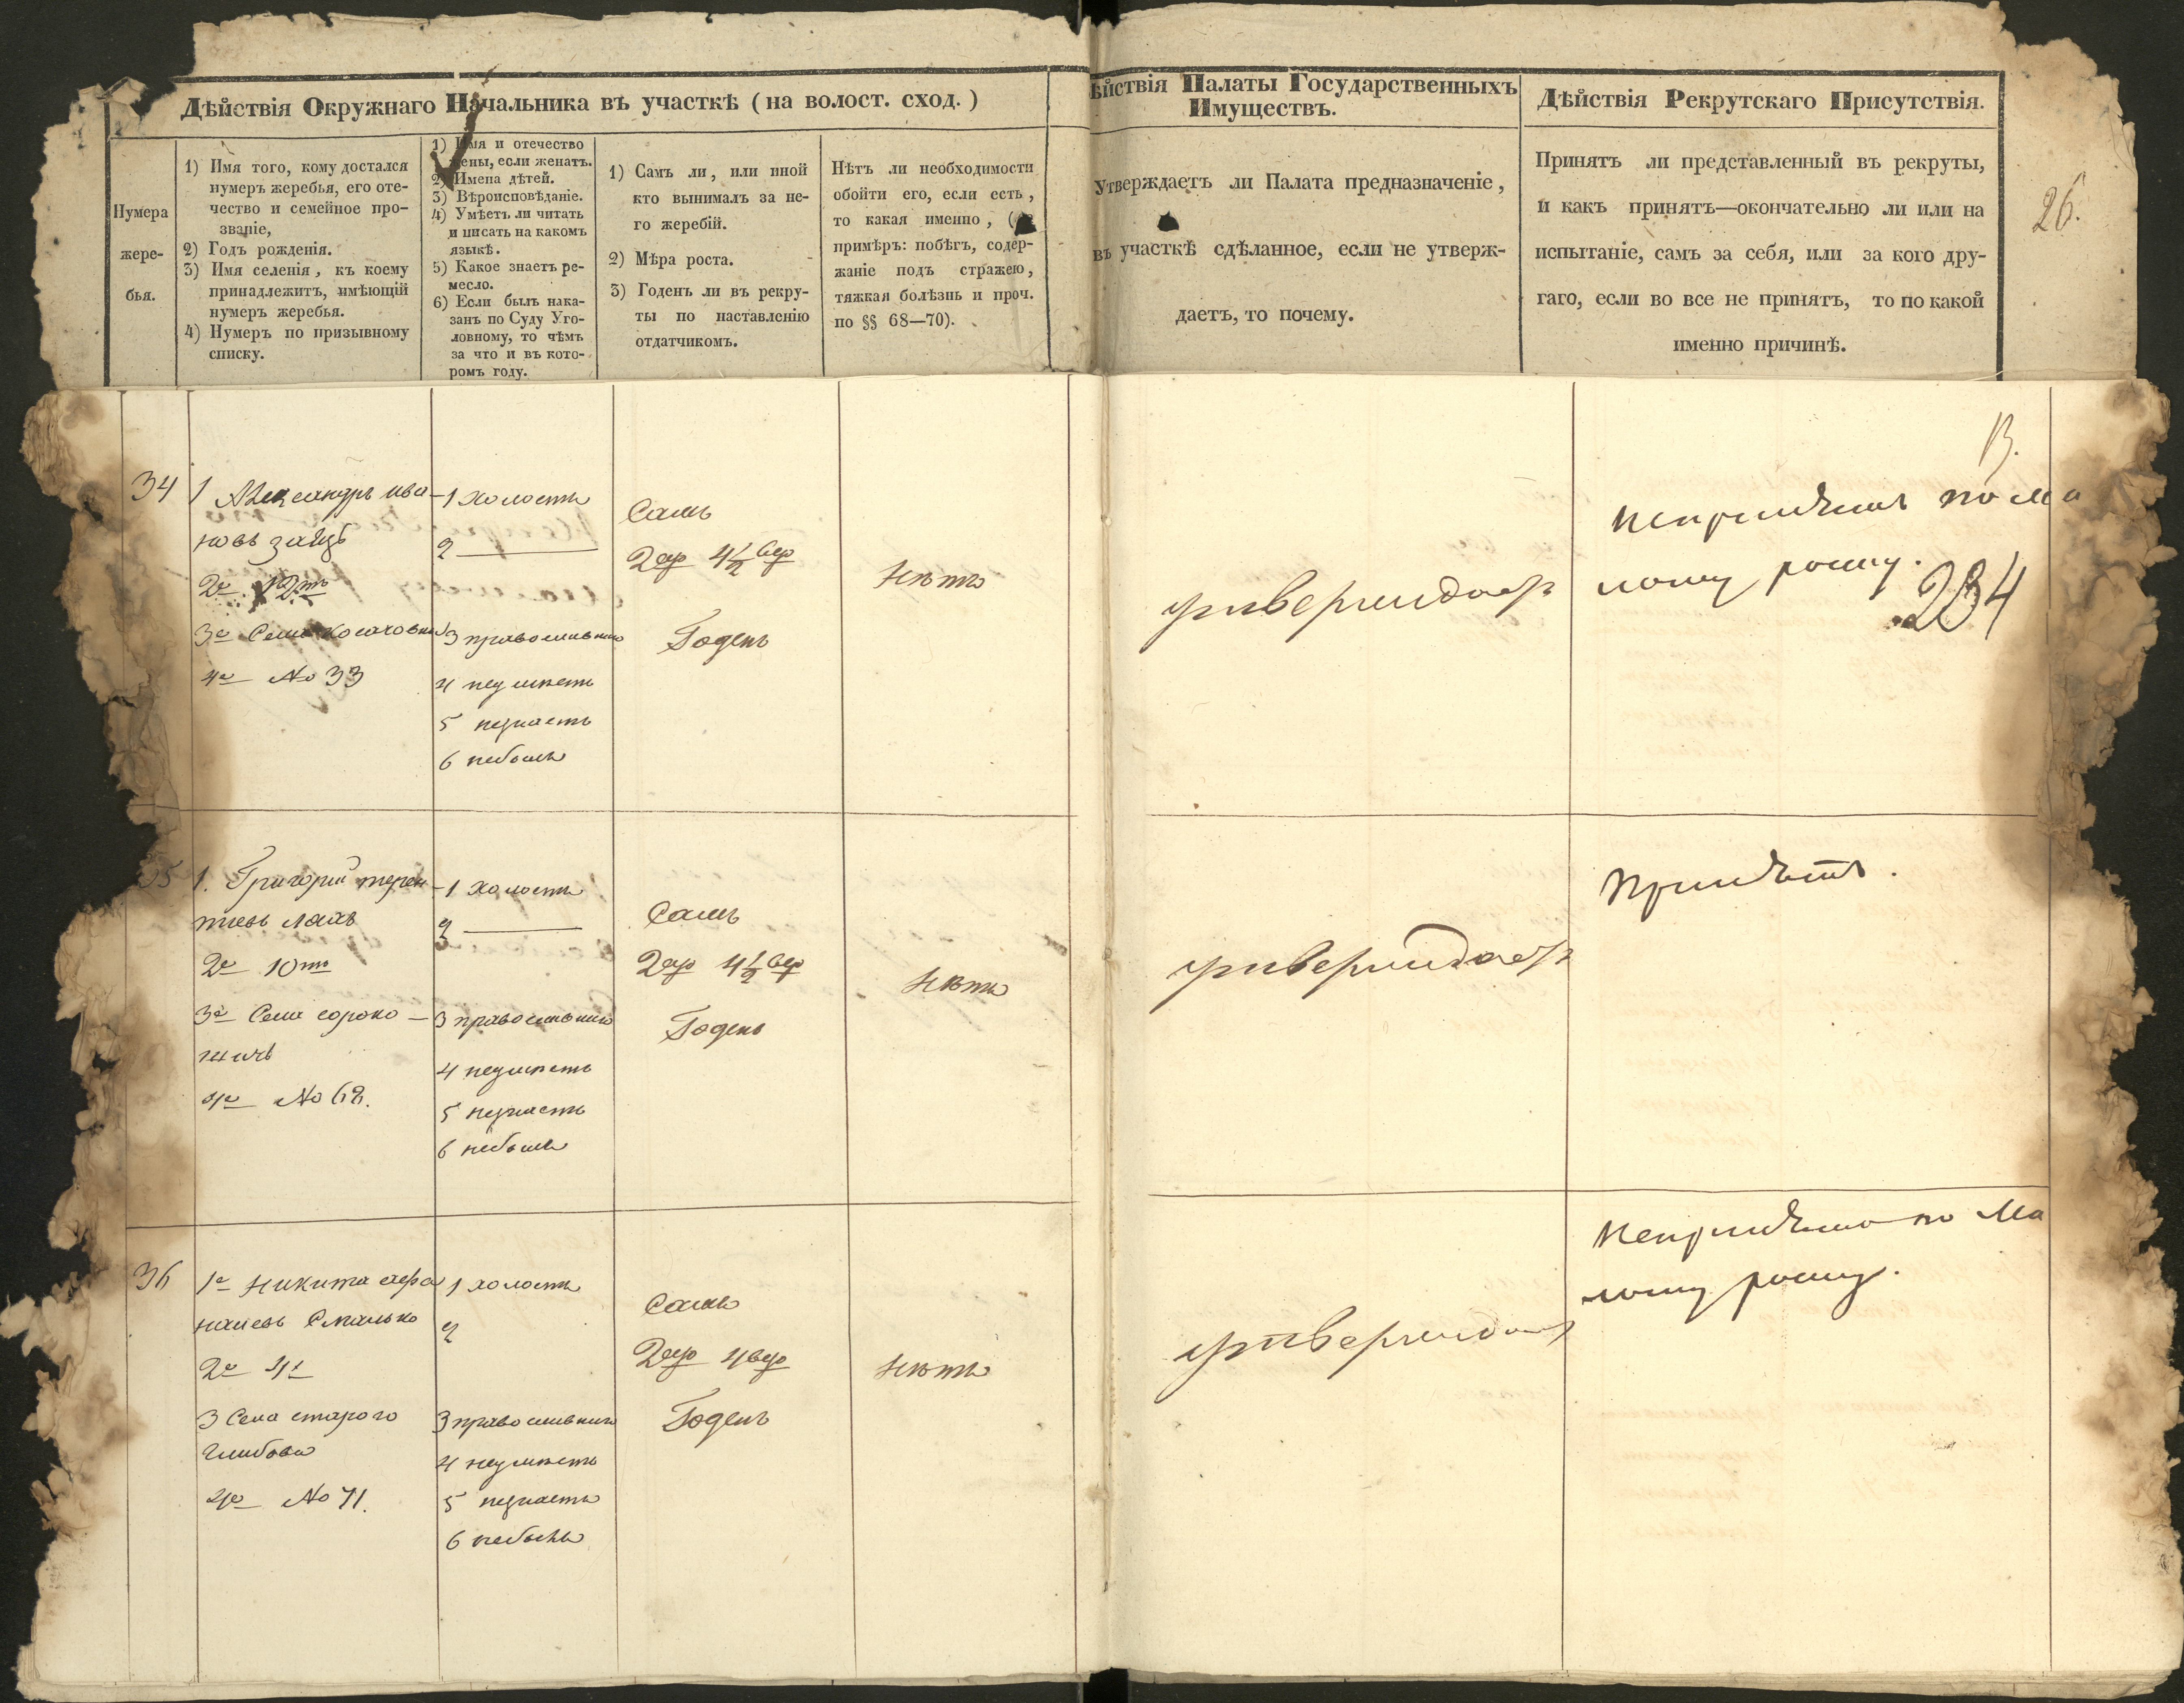 Дѣйствія Окружнаго Начальника въ участкѣ (на волост. сход.)
Нумера
жере-
бья.
1) Имя того, кому достался
нумеръ жеребья, его оте-
чество и семейное про-
званіе,
2) Годъ рожденія.
3) Имя селенія, къ коему
принадлежитъ, имѣющій
нумеръ жеребья.
4) Нумеръ по призывному
списку.
1) Имя и отечество
жены, если женатъ.
2) Имена дѣтей.
3) Вѣроисповѣданіе.
4) Умѣетъ ли читать
и писать на какомъ
языкѣ.
5) Какое знаетъ ре-
месло.
6) Если былъ нака-
занъ по Суду Уго-
ловному, то чѣмъ
за что и въ кото-
ромъ году.
1) Самъ ли, или иной
кто вынималъ за не-
го жеребій.
2) Мѣра роста.
3) Годенъ ли въ рекру-
ты по наставленію
отдатчикомъ.
Нѣтъ ли необходимости
обойти его, если есть,
то какая именно, (
примѣръ: побѣгъ, содер-
жаніе подъ стражею,
тяжкая болѣзнь и проч.
по §§ 68—70).
ѣйствія Палаты Государственныхъ
Имуществъ.
Утверждаетъ ли Палата предназначеніе,
въ участкѣ сдѣланное, если не утверж-
даетъ, то почему.
Дѣйствія Рекрутскаго Присутствія.
Принятъ ли представленный въ рекруты,
и какъ принятъ—окончательно ли или на
испытаніе, самъ за себя, или за кого дру-
гаго, если во все не принятъ, то по какой
именно причинѣ.
26.
34
1 Александръ ива-
новъ заяцъ
3е Села
4е № 33
1 холостъ
2
3 православнаго
4 неумѣетъ
5 незнаетъ
6 небылъ
Самъ
2 ар 4½ вер
Годенъ
Нѣтъ
утверждаетъ
непринятъ по ма
лому росту.
234
35
1. Григорий терен-
тиевъ
2е 10
3е Села сороко-
4е № 68.
1 холостъ
2
3 православнаго
4 неумѣетъ
5 незнаетъ
6 небылъ
Самъ
2 ар 4½ вер
Годенъ
Нѣтъ
утверждаетъ
Принятъ.
36
1е Никита афа
наиевъ
2е
3 Села старого
4е № 71.
1 холостъ
2
3 православнаго
4 неумѣетъ
5 незнаетъ
6 небылъ
Самъ
2 ар 4 вер
Годенъ
Нѣтъ
утверждаетъ
Непринятъ по ма
лому росту.